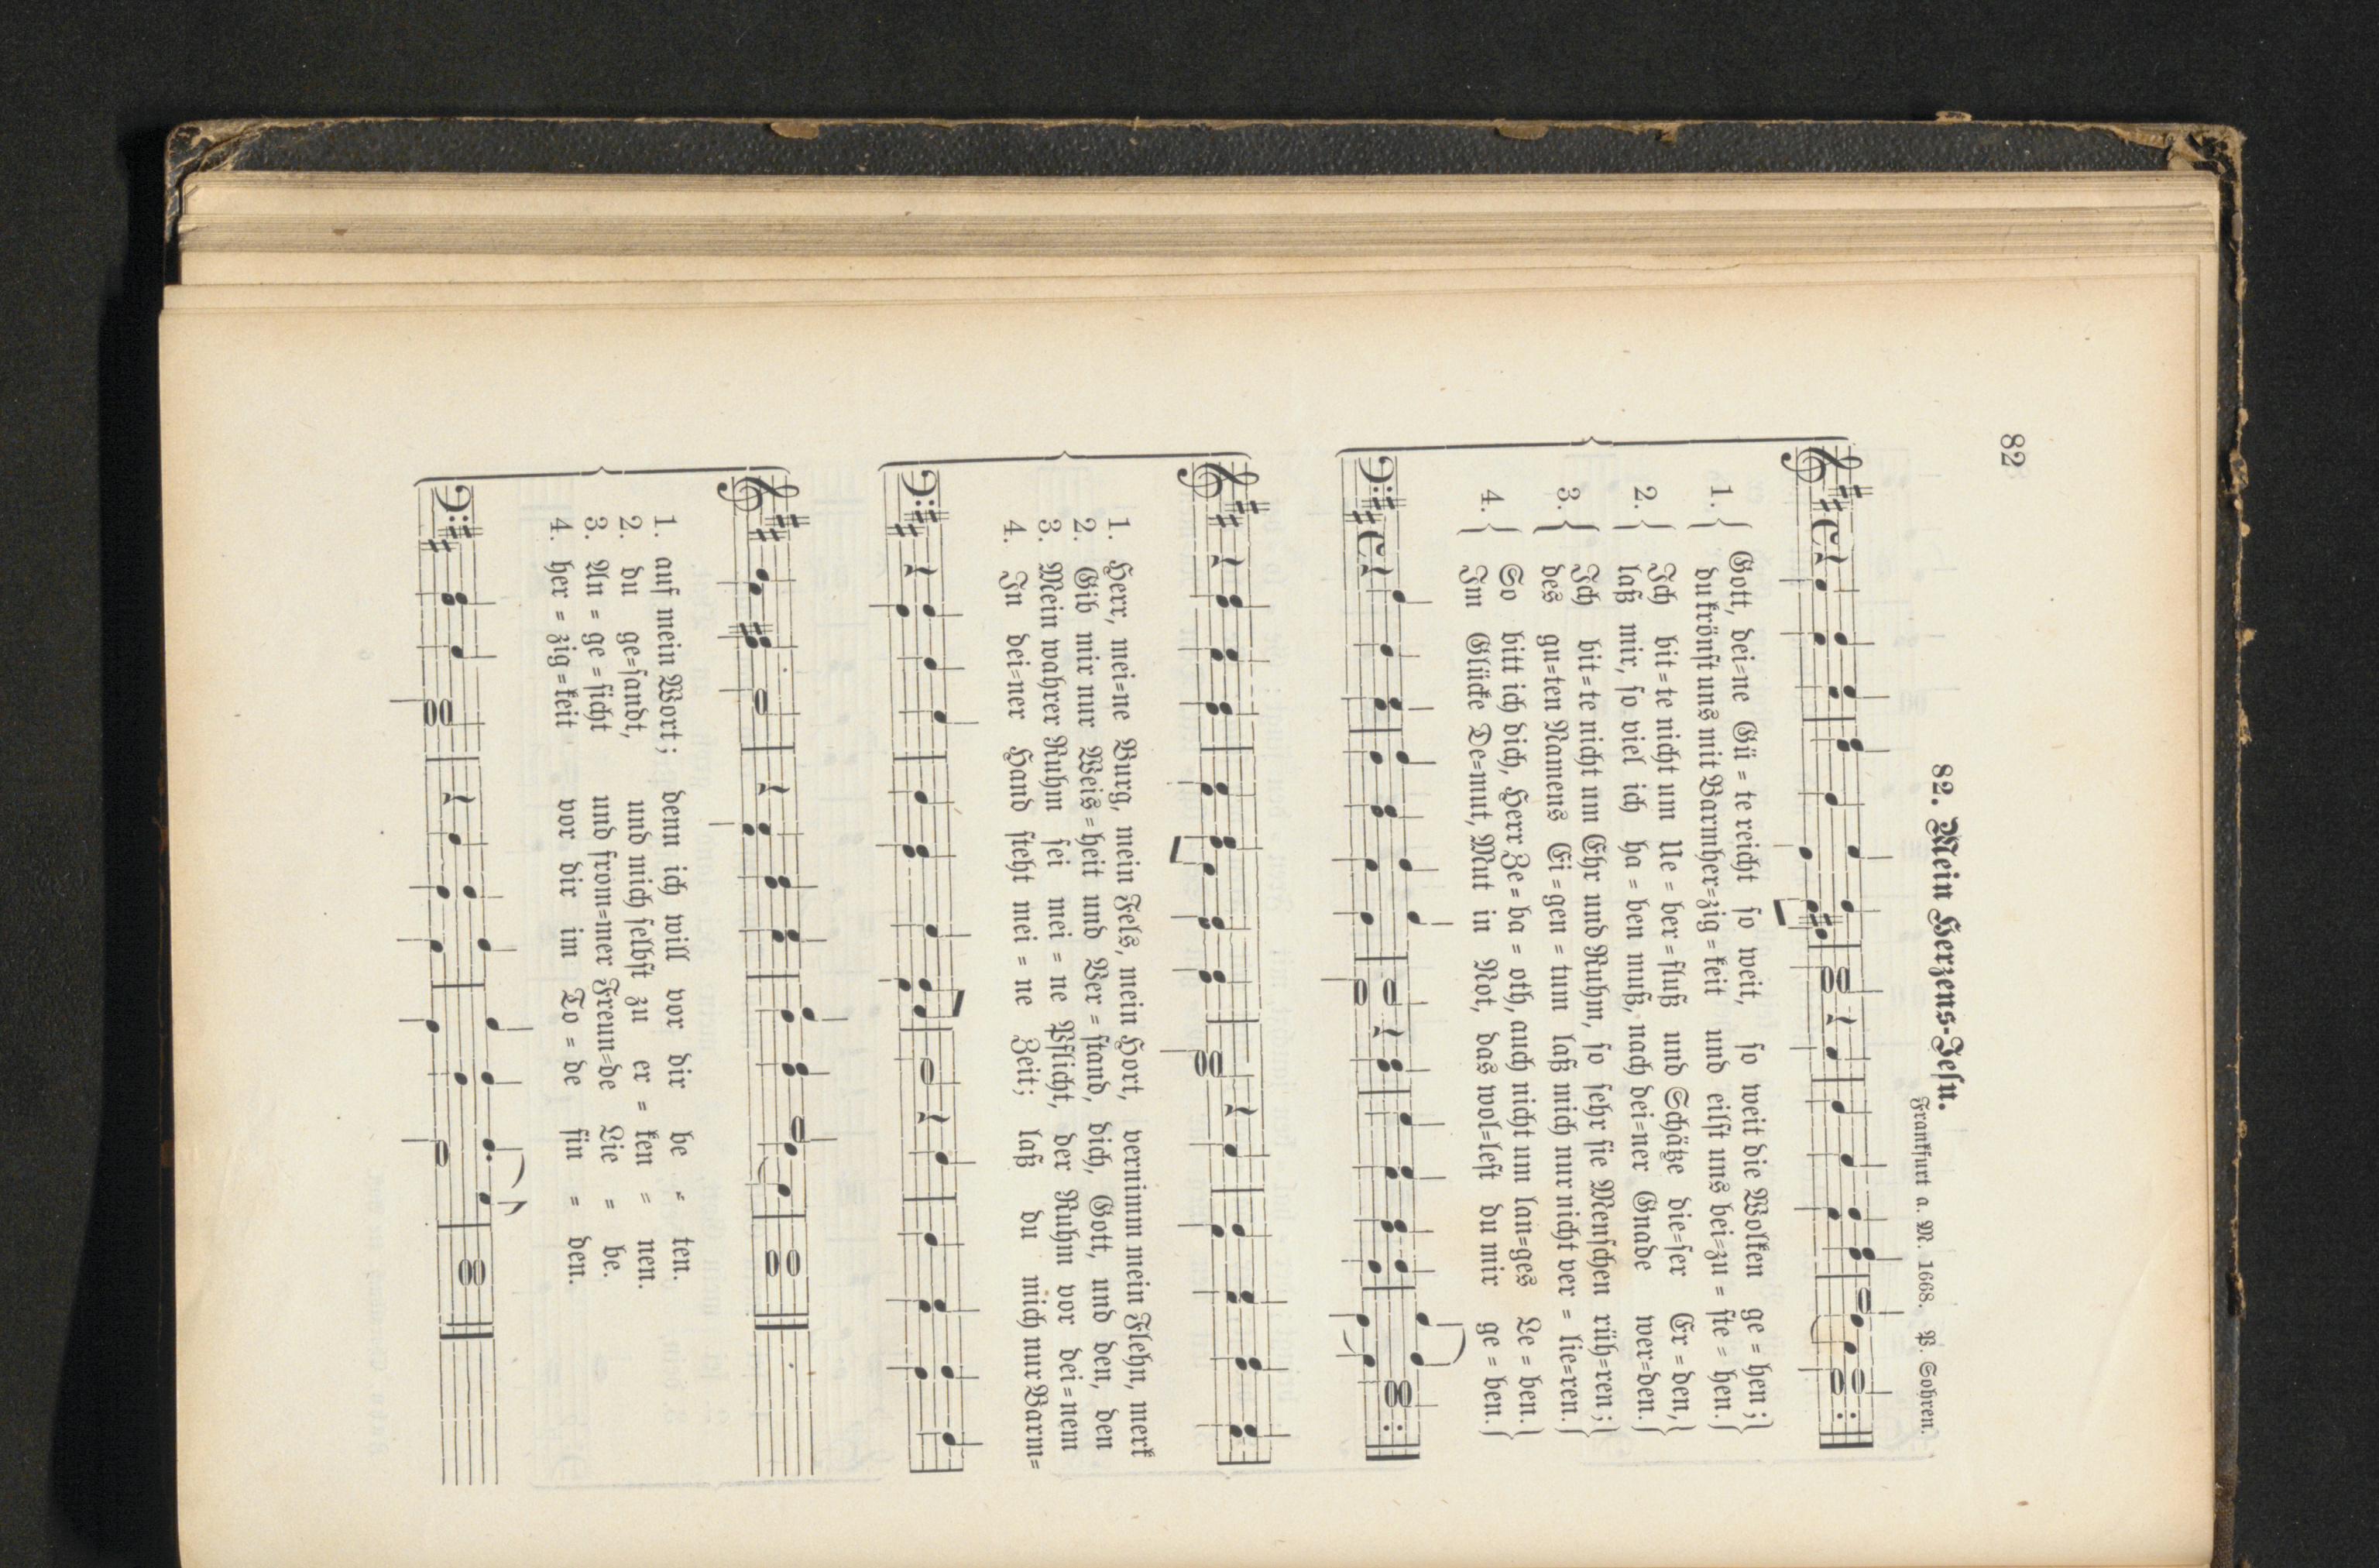 82
82. Mein Herzens-Jesu.
Frankfurt a. M. 1668. P. Sohren.
1. { Gott, dei=ne Gü = te reicht so weit, so weit die Wolken ge = hen; }
du krönst uns mit Barmher=zig=keit und eilst uns bei=zu = ste = hen. }
2. { Ich bit=te nicht um Ue = ber=fluß und Schätze die=ser Er = den, }
laß mir, so viel ich ha = ben muß, nach dei=ner Gnade wer=den. }
3. { Ich bit=te nicht um Ehr und Ruhm, so sehr sie Menschen rüh=ren; }
des gu=ten Namens Ei = gen = tum laß mich nur nicht ver = lie=ren. }
4. { So bitt ich dich, Herr Ze = ba = oth, auch nicht um lan=ges Le = ben. }
Im Glücke De=mut, Mut in Not, das wol=lest du mir ge = ben. }
1. Herr, mei=ne Burg, mein Fels, mein Hort, vernimm mein Flehn, merk
2. Gib mir nur Weis = heit und Ver = stand, dich, Gott, und den, den
3. Mein wahrer Ruhm sei mei = ne Pflicht, der Ruhm vor dei=nem
4. In dei=ner Hand steht mei = ne Zeit; laß du mich nur Barm=
1. auf mein Wort; denn ich will vor dir be = ten.
2. du ge=sandt, und mich selbst zu er = ken = nen.
3. An = ge = sicht und from=mer Freun=de Lie = be.
4. her = zig=keit vor dir im To = de fin = den.